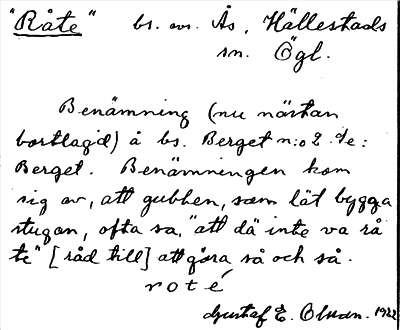 "Råte" bs. ovs. Ås, Hällestads
sn. Ögl.
Benämning (nu nästan
bortlagd) å bs. Berget n:o 2 /
Berget. Benämningen kom
sig av, att gubben, som lät bygga
stugan, ofta sa, "att dä inte va rå
te" [råd till] att göra så och så.
roté
Gustaf E. Olson. 1922